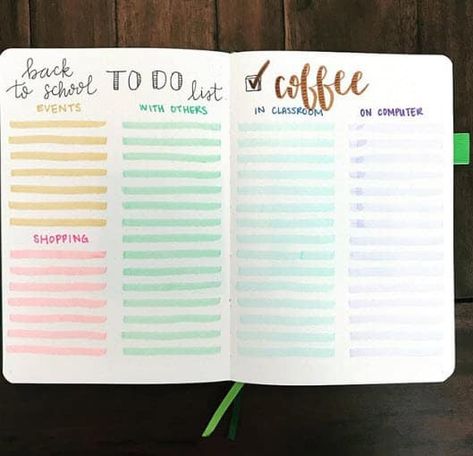 back
to school TO DO list
EVENTS
WITH OTHERS
SHOPPING
coffee
IN CLASSROOM
ON COMPUTER